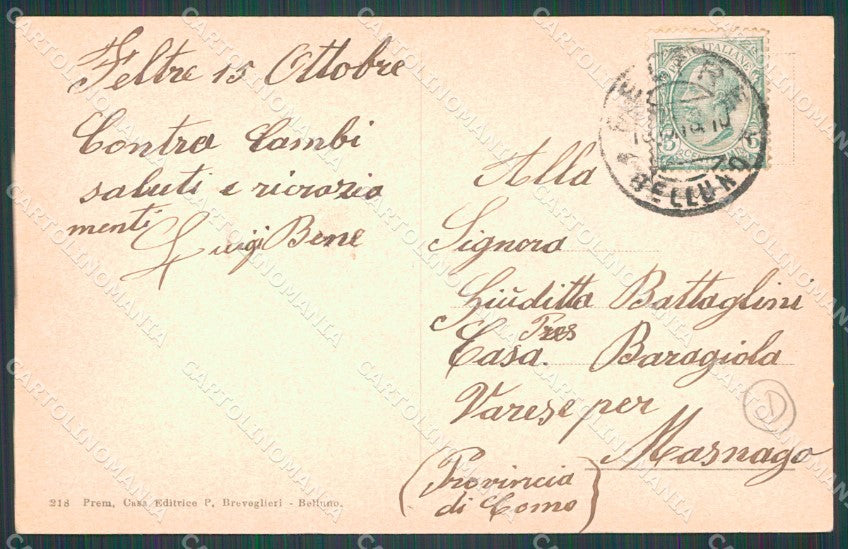 Feltre 15 Ottobre
Contra Cambi
saluti e ricrazia
menti
Luigi Bene
Alla
Signora
Giuditta Battaglini
Pres
Casa. Baragiola
Varese per
Masnago
(Provincia
di Como)
BELLUNO
218 Prem. Casa Editrice P. Breveglieri - Belluno.
CARTOLINOMANIA